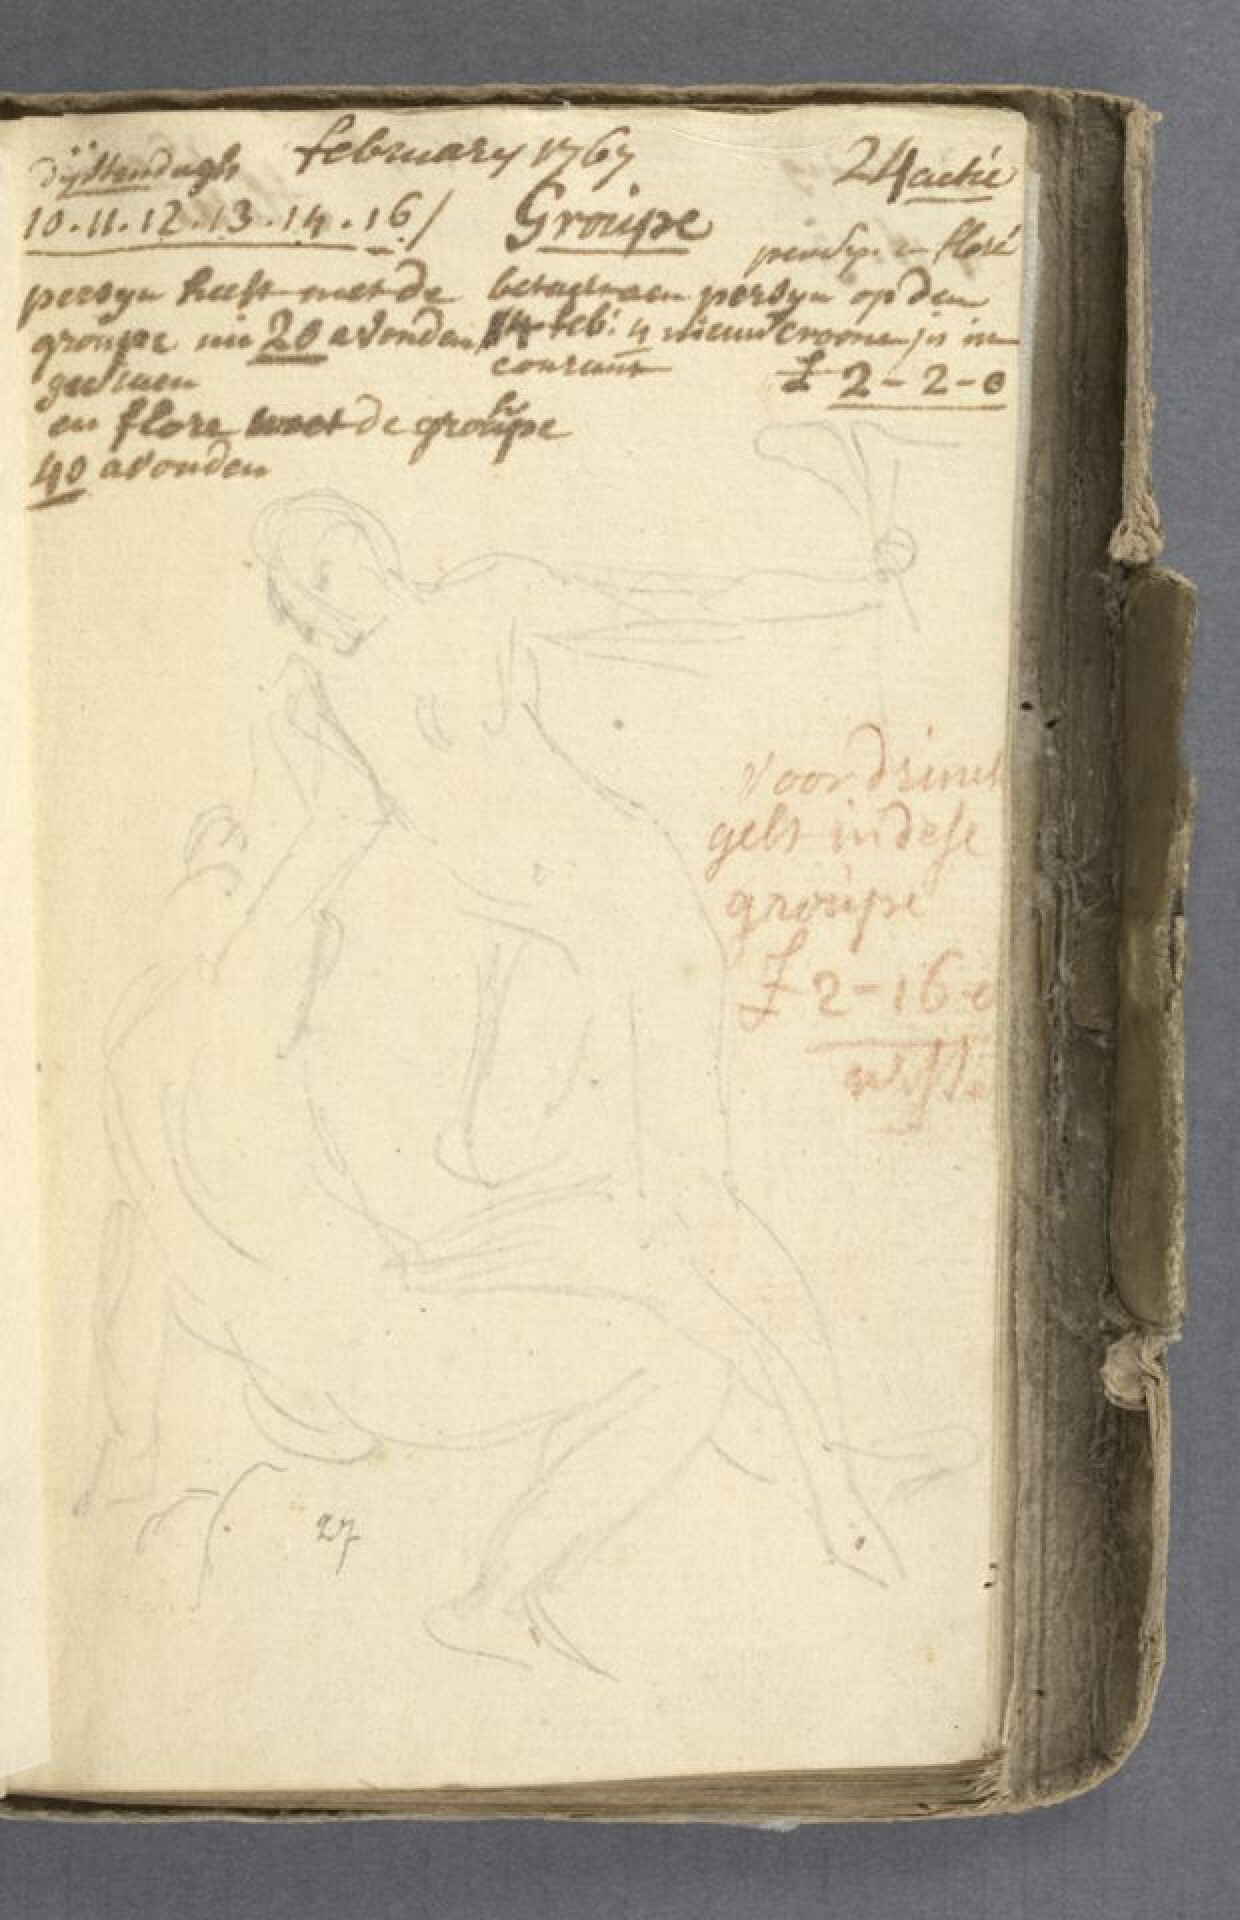 dijssendagh february 1767 24 actié
10.11.12.13.14.16/ Groúpe
persyn en floré
persyn heeft met de
groupe nu 20 avonden
geseten
en flore met de groúpe
40 avonden
betaelt aen persyn op den
14 feb: 4 nieuw croonen js in
courant £ 2-2-0
voor drinck
gelt in dese
groúpe
£ 2-16-0
27